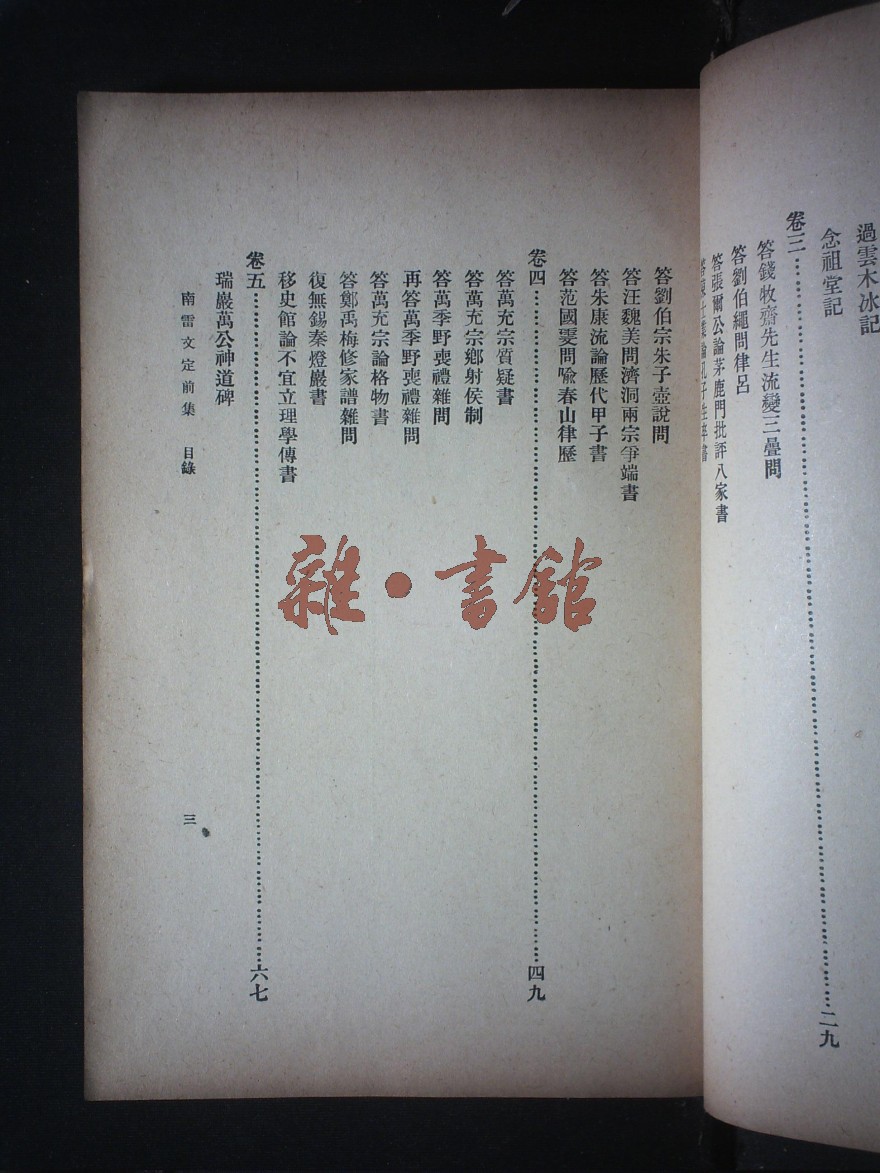 過雲木冰記
念祖堂記
卷三……二九
答錢牧齋先生流變三疊問
答劉伯繩問律呂
答張爾公論茅鹿門批評八家書
論孔子生卒書
答劉伯宗朱子壺說問
答汪魏美問濟洞兩宗爭端書
答朱康流論歷代甲子書
答范國雯問喩春山律歷
卷四……四九
答萬充宗質疑書
答萬充宗鄉射侯制
答萬季野喪禮雜問
再答萬季野喪禮雜問
答萬充宗論格物書
答鄭禹梅修家譜雜問
復無錫秦燈巖書
移史館論不宜立理學傳書
卷五……六七
瑞巖萬公神道碑
南雷文定前集 目錄
三
雜·書館